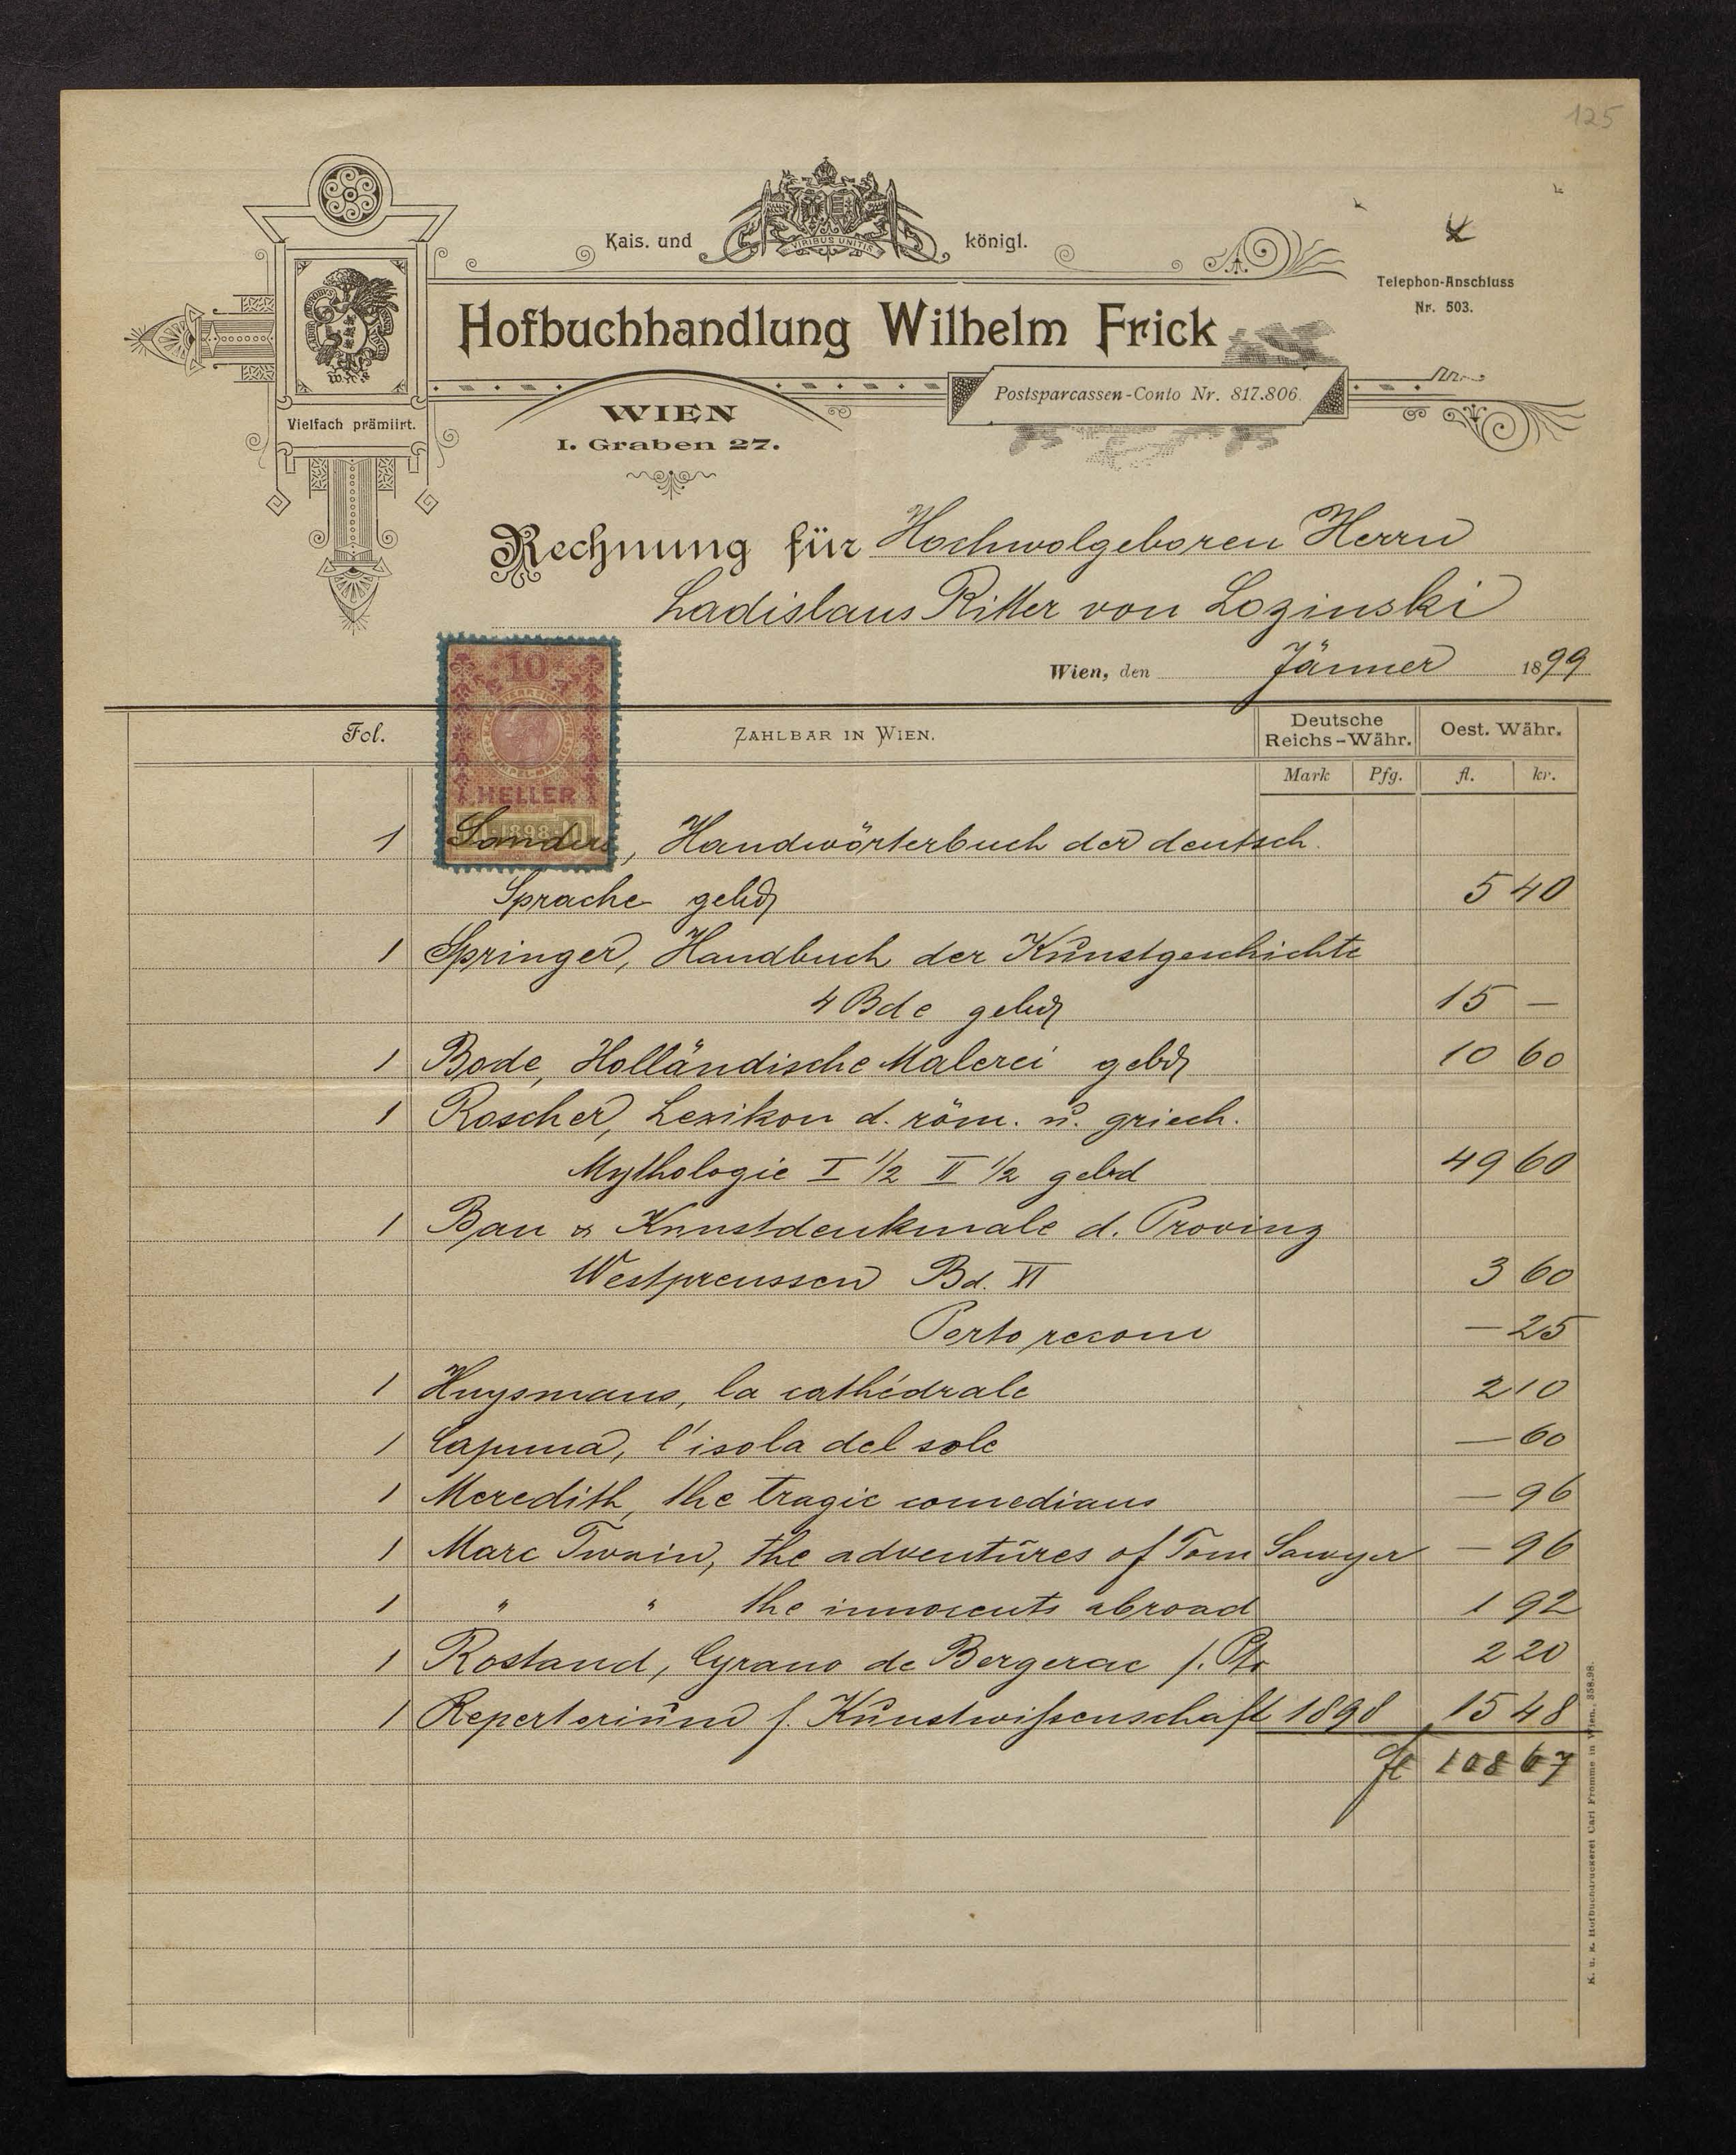 125
Kais. und königl.
VIRIBUS UNITIS
Telephon-Anschluss
Nr. 503.
Hofbuchhandlung Wilhelm Frick
Postsparcassen-Conto Nr. 817.806.
Vielfach prämiirt.
WIEN
I. Graben 27.
Rechnung für Hochwolgeboren Herrn
Ladislaus Ritter von Lozinski
Wien, den Jänner 1899
10
HELLER
1898
Fol. ZAHLBAR IN WIEN. Deutsche Reichs-Währ. Oest. Währ.
Mark Pfg. fl. kr.
1 Sanders, Handwörterbuch der deutsch.
Sprache gebd 5 40
1 Springer, Handbuch der Kunstgeschichte
4 Bde gebd 15 —
1 Bode, Holländische Malerei gebd 10 60
1 Roscher, Lexikon d. röm. u. griech.
Mythologie I 1/2 II 1/2 gebd 49 60
1 Bau & Kunstdenkmale d. Provinz
Westpreussen Bd. XI 3 60
Porto recom — 25
1 Huysmans, la cathédrale 2 10
1 Capuana, l'isola del sole — 60
1 Meredith, the tragic comedians — 96
1 Marc Twain, the adventures of Tom Sawyer — 96
1 " " the innocents abroad 1 92
1 Rostand, Cyrano de Bergerac 2 20
1 Repertorium f. Kunstwissenschaft 1898 15 48
fl 108 67
K. u. k. Hofbuchdruckerei Carl Fromme in Wien. 358.98.